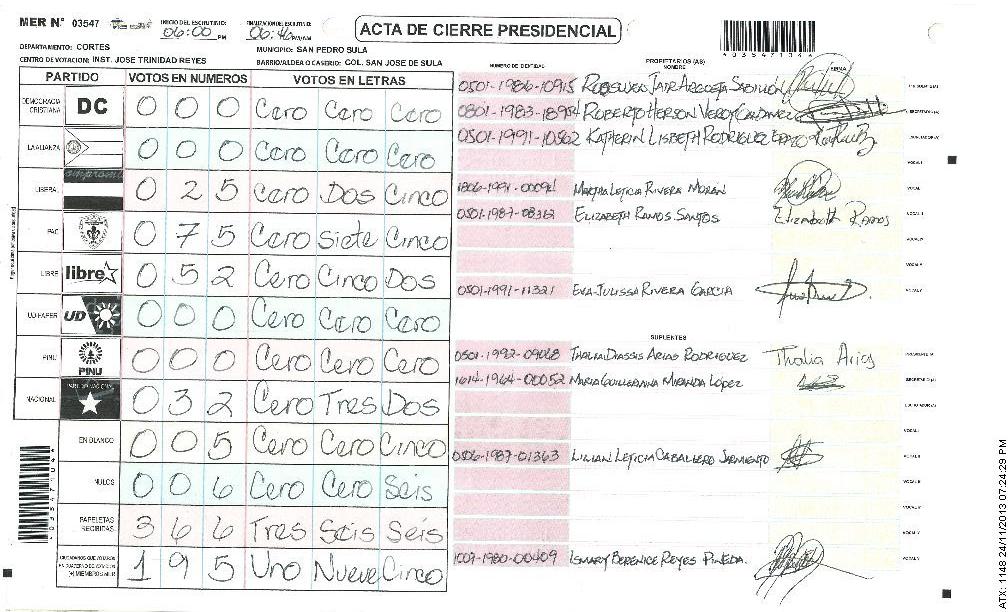 MER N° 03547
INICIO DEL ESCRUTINIO:
06:00 PM
FINALIZACION DEL ESCRUTINIO:
06:46 PM/AM
ACTA DE CIERRE PRESIDENCIAL
DEPARTAMENTO: CORTES
MUNICIPIO: SAN PEDRO SULA
CENTRO DE VOTACION: INST. JOSE TRINIDAD REYES
BARRIO/ALDEA O CASERIO: COL. SAN JOSE DE SULA
PARTIDO VOTOS EN NUMEROS VOTOS EN LETRAS
DEMOCRACIA CRISTIANA DC 0 0 0 Cero Cero Cero
LA ALIANZA 0 0 0 Cero Cero Cero
LIBERAL 0 2 5 Cero Dos Cinco
PAC 0 7 5 Cero Siete Cinco
LIBRE libre 0 5 2 Cero Cinco Dos
UD FAPER UD 0 0 0 Cero Cero Cero
PINU PINU 0 0 0 Cero Cero Cero
NACIONAL 0 3 2 Cero Tres Dos
EN BLANCO 0 0 5 Cero Cero Cinco
NULOS 0 0 6 Cero Cero Seis
PAPELETAS RECIBIDAS 3 6 6 Tres Seis Seis
1 9 5 Uno Nueve Cinco
NUMERO DE IDENTIDAD
PROPIETARIOS (AS)
NOMBRE
FIRMA
0501-1986-10915
0801-1983-18954 ROBERTO HERSON
0501-1991-10562 KATHERIN LISBETH RODRIGUEZ
MARTHA LETICIA RIVERA MORAN
0501-1987-08312 ELIZABETH RAMOS SANTOS Elizabeth Ramos
0501-1991-11321 EVA JULISSA RIVERA GARCIA
SUPLENTES
0501-1992-09068 THALIA DIASSIS ARIAS RODRIGUEZ Thalia Arias
1614-1964-00052 MARIA GUILLERMINA MIRANDA LÓPEZ
0506-1987-01363 LILIAN LETICIA CABALLERO SARMIENTO
1007-1980-00409 ISMARY BERENICE REYES PINEDA.
ATX: 1148 24/11/2013 07:24:29 PM